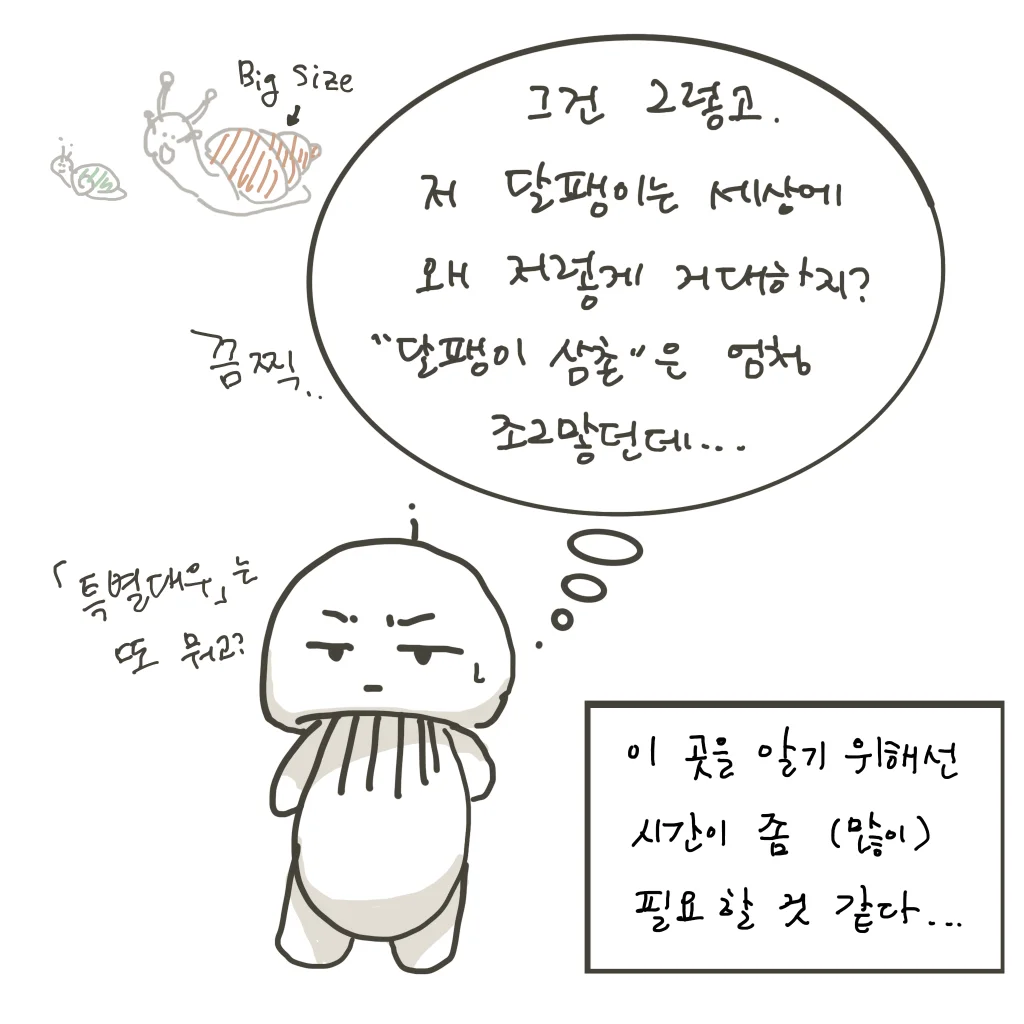 Big Size
그건 그렇고.
저 달팽이는 세상에
왜 저렇게 거대하지?
"달팽이 삼촌"은 엄청
조그맣던데...
끔찍..
「특별대우」는
또 뭐고?
이 곳을 알기 위해선
시간이 좀 (많이)
필요할 것 같다...